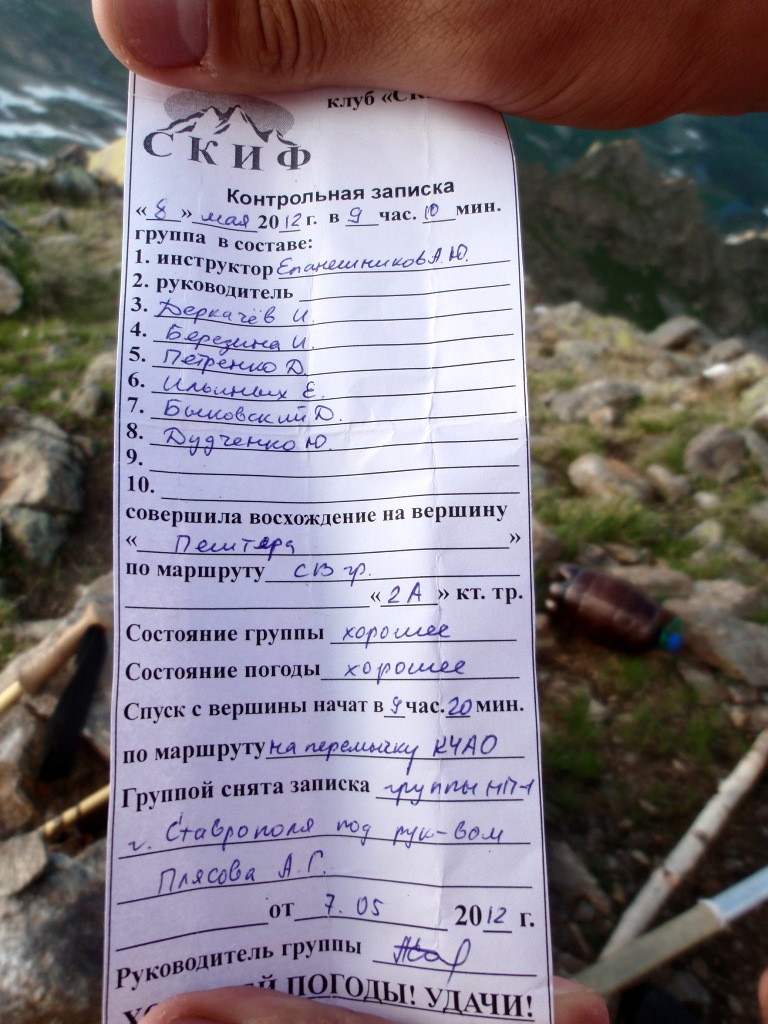 клуб «СК
СКИФ
Контрольная записка
«8» мая 2012 г. в 9 час. 10 мин.
группа в составе:
1. инструктор Епанешников А.Ю.
2. руководитель
3. Деркачёв И.
4. Березина И.
5. Петренко Д.
6. Ильиных Е.
7. Быковский Д.
8. Дудченко Ю.
9.
10.
совершила восхождение на вершину
« Пештера »
по маршруту СВ гр.
« 2А » кт. тр.
Состояние группы хорошее
Состояние погоды хорошее
Спуск с вершины начат в 9 час. 20 мин.
по маршруту на перемычку КЧАО
Группой снята записка группы НП-1
г. Ставрополя под рук-вом
Плясова А.Г.
от 7.05 2012 г.
Руководитель группы
ПОГОДЫ! УДАЧИ!